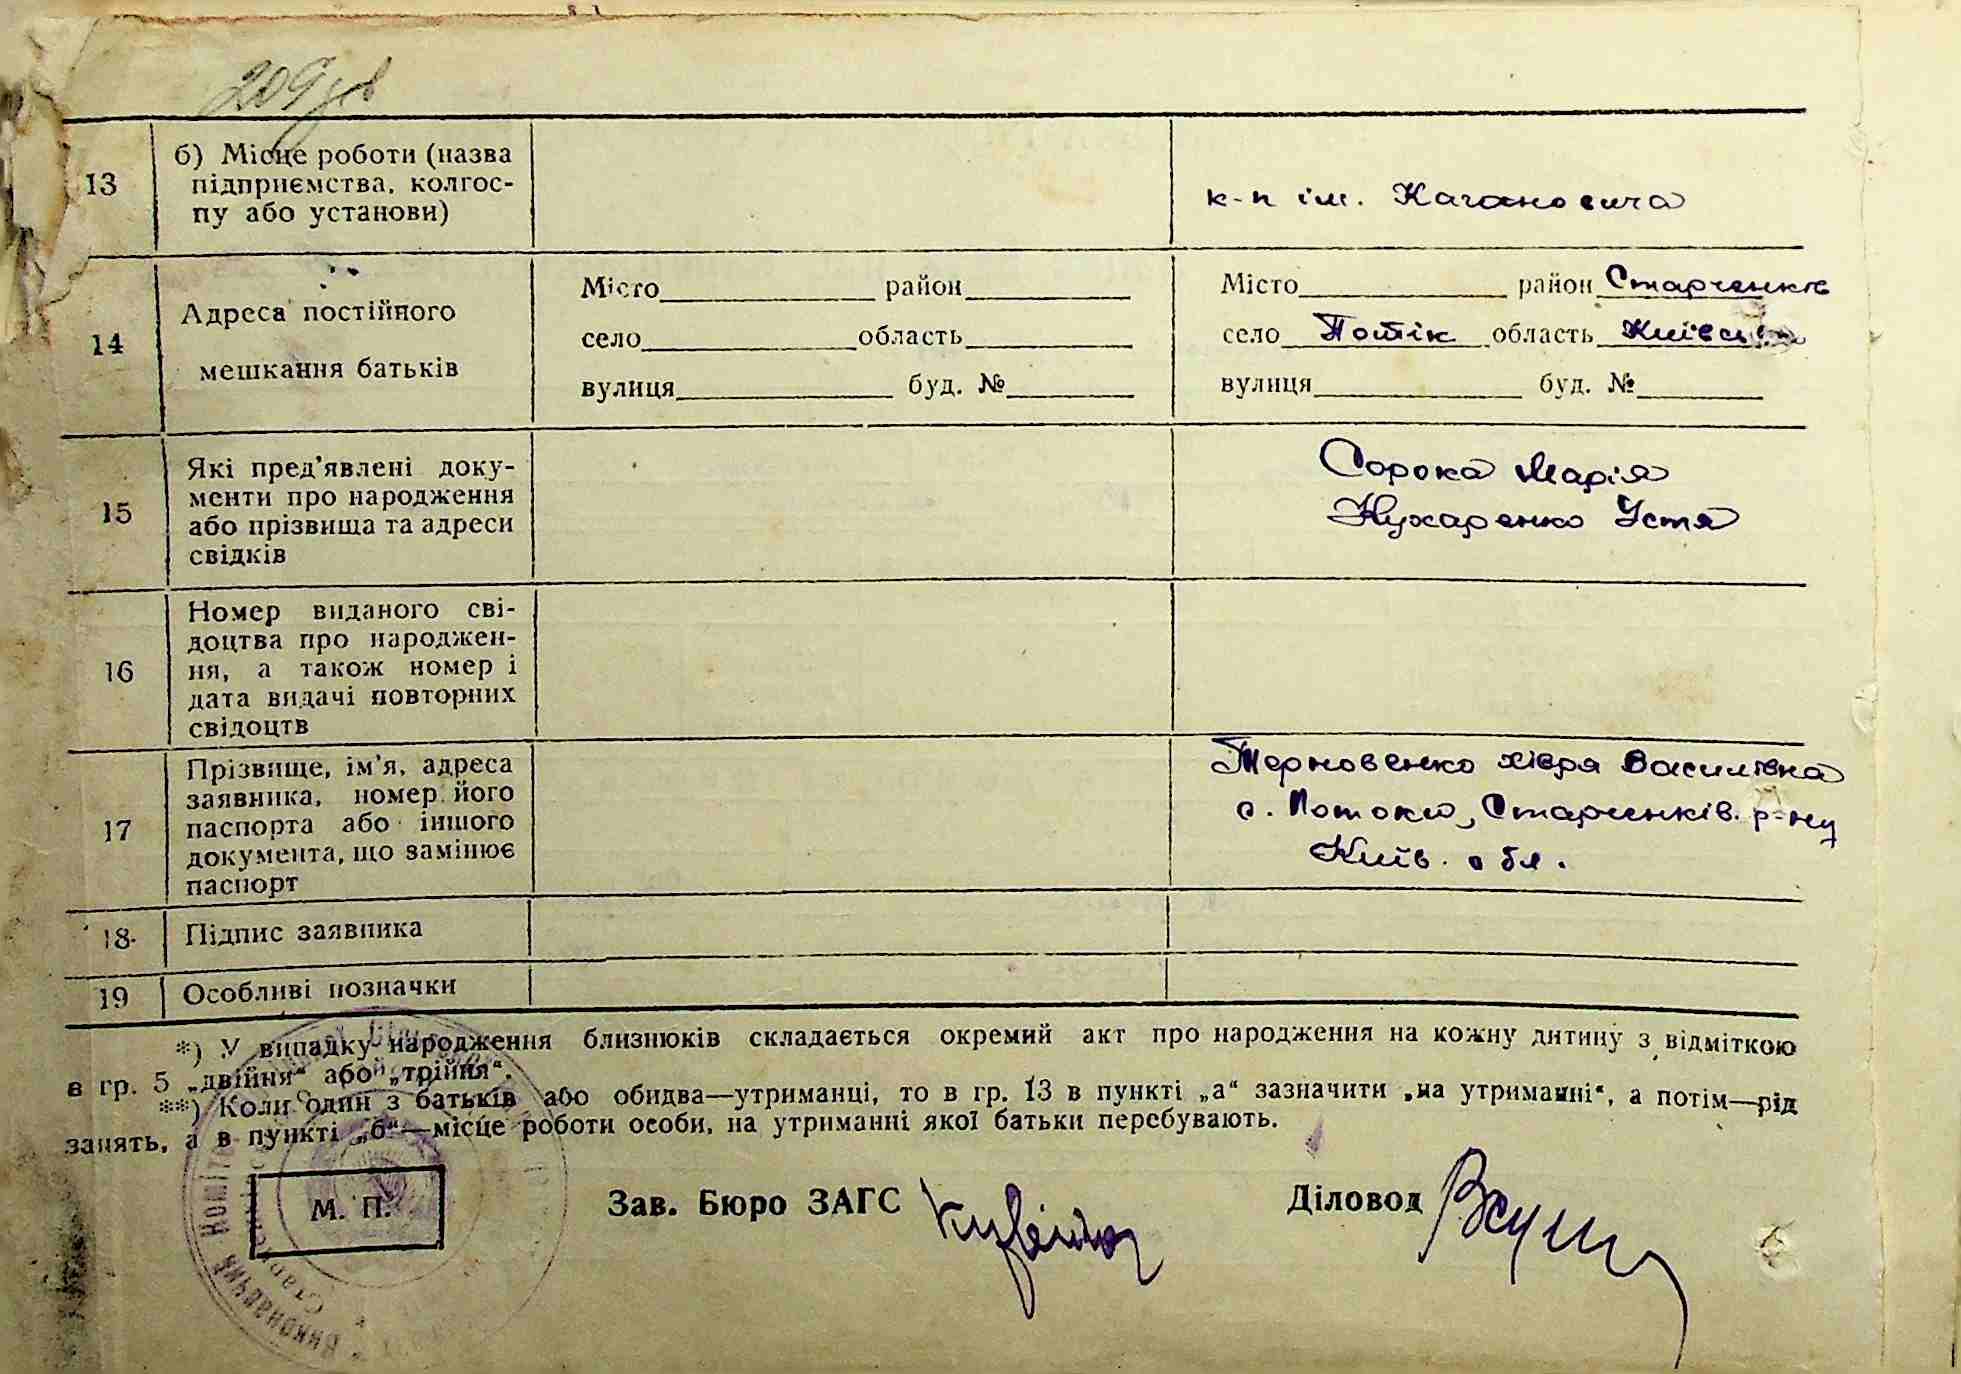 209
13
б) Місце роботи (назва
підприємства, колгос-
пу або установи)
к-п ім. Кагановича
14
Адреса постійного
мешкання батьків
Місто район
село область
вулиця буд. №
Місто район Старченків
село Потік область Київськ
вулиця буд. №
15
Які пред'явлені доку-
менти про народження
або прізвища та адреси
свідків
Сорока Марія
Кухаренко Устя
16
Номер виданого сві-
доцтва про народжен-
ня, а також номер і
дата видачі повторних
свідоцтв
17
Прізвище, ім'я, адреса
заявника, номер його
паспорта або іншого
документа, що замінює
паспорт
Терновенко Хівря Василівна
с. Потоки, Старченків. р-ну
Київ. обл.
18
Підпис заявника
19
Особливі позначки
*) У випадку народження близнюків складається окремий акт про народження на кожну дитину з відміткою
в гр. 5 „двійня“ або „трійня“.
**) Коли один з батьків або обидва—утриманці, то в гр. 13 в пункті „а“ зазначити „на утриманні“, а потім—рід
занять, а в пункті „б“—місце роботи особи, на утриманні якої батьки перебувають.
М. П.
Зав. Бюро ЗАГС
Діловод
Виконавчий Коміте